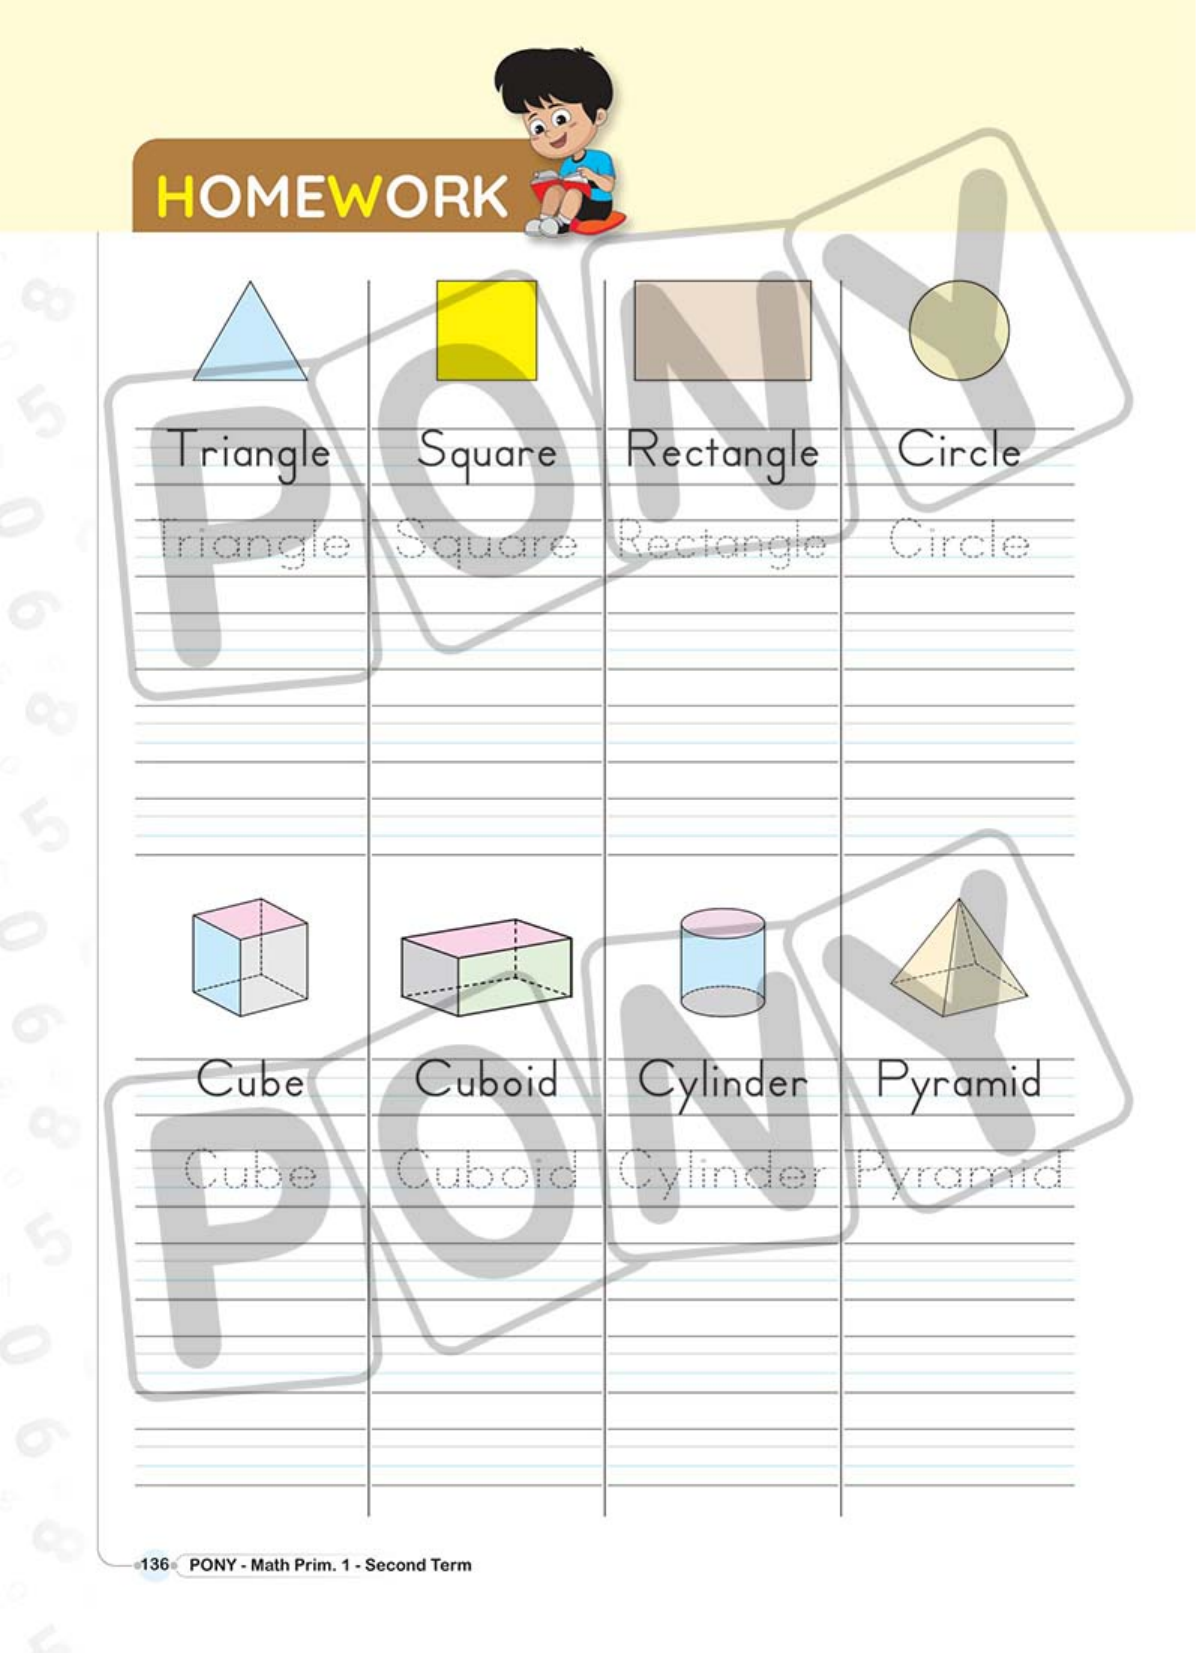 HOMEWORK
Triangle Square Rectangle Circle
Triangle Square Rectangle Circle
Cube Cuboid Cylinder Pyramid
Cube Cuboid Cylinder Pyramid
136 PONY - Math Prim. 1 - Second Term
PONY
PONY